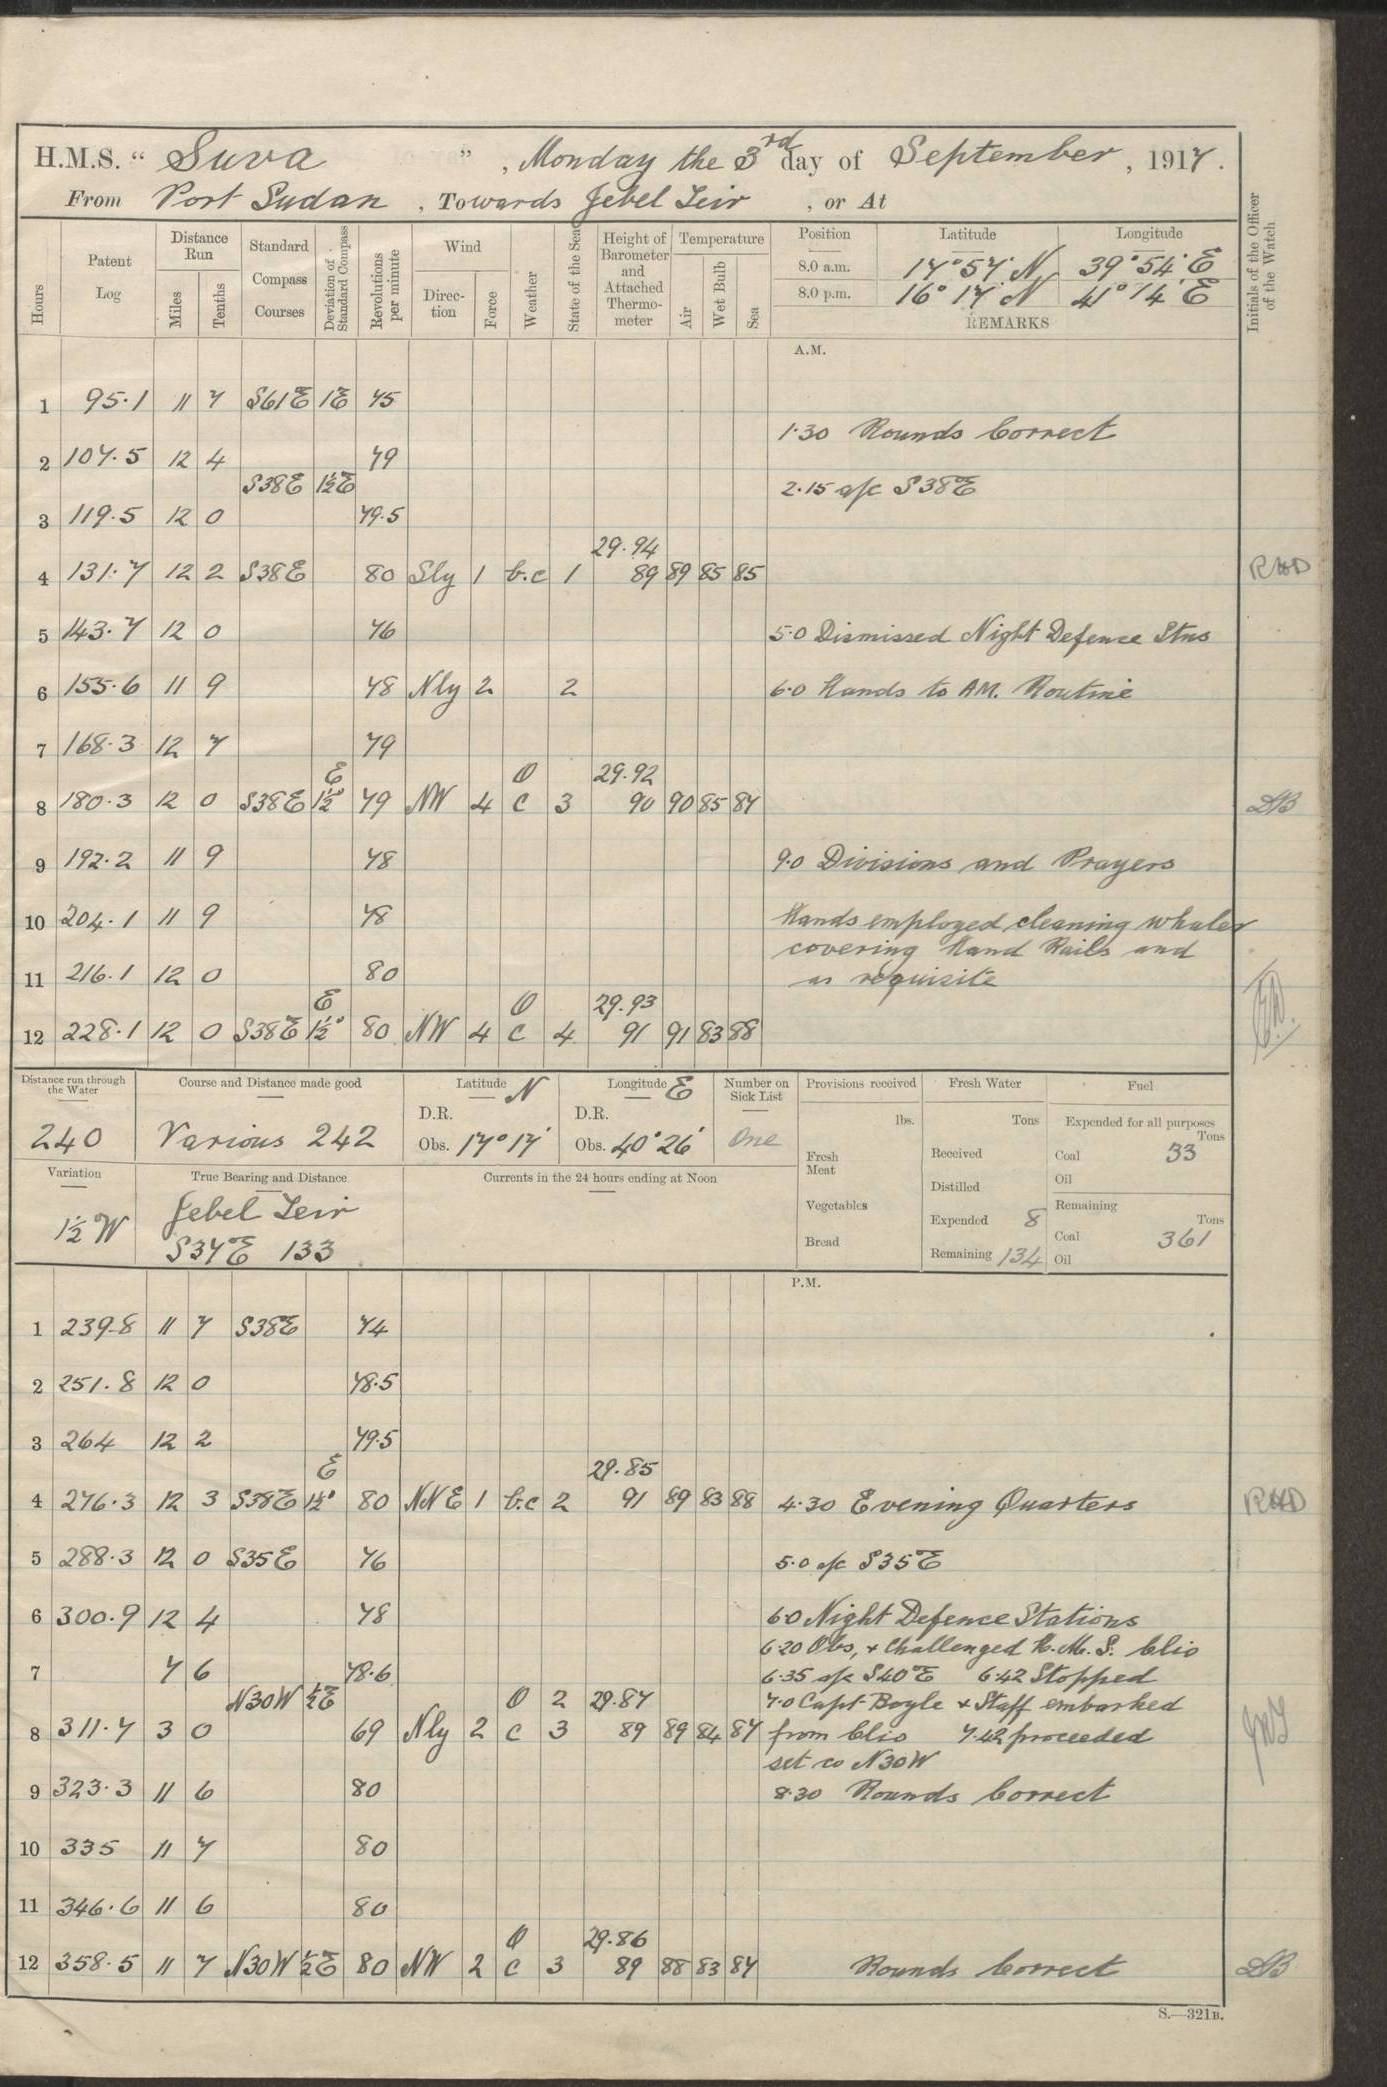 H.M.S. " Suva ", Monday the 3rd day of September, 1917.
From Port Sudan, Towards Jebel Teir, or At
Hours Patent Log Distance Run Miles Tenths Standard Compass Courses Deviation of Standard Compass Revolutions per minute Wind Direction Force Weather State of the Sea Height of Barometer and Attached Thermometer Temperature Air Wet Bulb Sea Position Latitude Longitude Initials of the Officer of the Watch
8.0 a.m. 17° 57' N 39° 54' E
8.0 p.m. 16° 17' N 41° 14' E
REMARKS
A.M.
1 95.1 11 7 S61E 1E 75
1.30 Rounds Correct
2 107.5 12 4 79
S38E 1½E 2.15 a/c S38E
3 119.5 12 0 79.5
29.94
4 131.7 12 2 S38E 80 Sly 1 b.c 1 89 89 85 85 RHD
5 143.7 12 0 76 5.0 Dismissed Night Defence Stns
6 155.6 11 9 78 Nly 2 2 6.0 Hands to AM. Routine
7 168.3 12 7 79
E O 29.92
8 180.3 12 0 S38E 1½° 79 NW 4 C 3 90 90 85 87
9 192.2 11 9 78 9.0 Divisions and Prayers
10 204.1 11 9 78 Hands employed cleaning whaler
covering Hand Rails and
11 216.1 12 0 80 as requisite
E O 29.93
12 228.1 12 0 S38E 1½° 80 NW 4 C 4 91 91 83 88
Distance run through the Water Course and Distance made good Latitude N Longitude E Number on Sick List Provisions received Fresh Water Fuel
D.R. D.R. lbs. Tons Expended for all purposes Tons
240 Various 242 Obs. 17° 17' Obs. 40° 26' One Fresh Meat Received Coal 33
Oil
Variation True Bearing and Distance Currents in the 24 hours ending at Noon Distilled
1½ W Jebel Teir Vegetables Expended 8 Remaining Tons
S37E 133 Bread Remaining 134 Coal 361
Oil
P.M.
1 239.8 11 7 S38E 74
2 251.8 12 0 78.5
3 264 12 2 79.5
E 29.85
4 276.3 12 3 S38E 1½° 80 NNE 1 b.c 2 91 89 83 88 4.30 Evening Quarters RHD
5 288.3 12 0 S35E 76 5.0 a/c S35E
6 300.9 12 4 78 6.0 Night Defence Stations
6.20 Obs, + Challenged H.M.S. Clio
7 7 6 78.6 6.35 a/c S40E 6.42 Stopped
N30W ½E O 2 29.87 7.0 Capt. Boyle + Staff embarked
8 311.7 3 0 69 Nly 2 C 3 89 89 84 87 from Clio 7.42 proceeded
set co N30W
9 323.3 11 6 80 8.30 Rounds Correct
10 335 11 7 80
11 346.6 11 6 80
O 29.86
12 358.5 11 7 N30W ½E 80 NW 2 C 3 89 88 83 87 Rounds Correct
S.—321B.